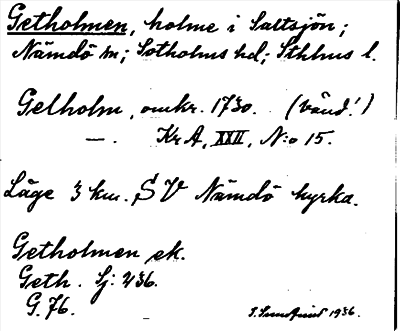 Getholmen, holme i Saltsjön;
Nämdö sn; Sotholms hd; Sthlms l.
Getholm, omkr. 1730. (vänd!)
—. Kr A, XXII, N:o 15.
Läge 3 km. SV Nämdö kyrka.
Getholmen ek.
Geth. Sj: 236.
G. 76.
1936.